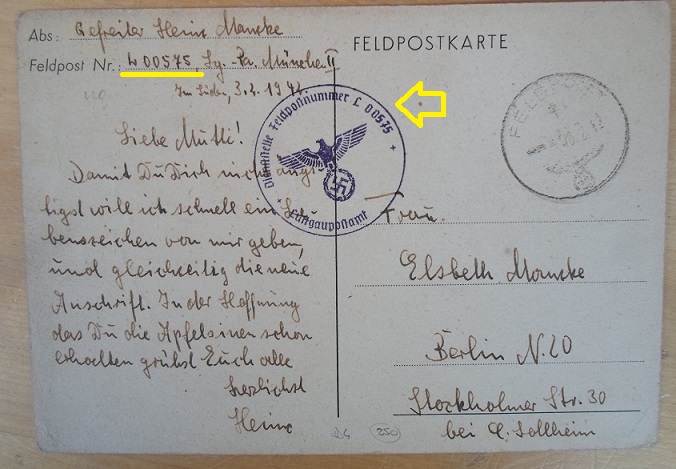 Abs: Gefreiter Heinz Mancke
Feldpost Nr.: L 00575, Lg.-Pa. München II
Im Süden, 3.2.1942.
FELDPOSTKARTE
Dienststelle Feldpostnummer L 00575
Luftgaupostamt
FELDPOST
Liebe Mutti!
Damit Du Dich nicht ängs-
tigst will ich schnell ein Le-
benszeichen von mir geben,
und gleichzeitig die neue
Anschrift. In der Hoffnung
das Du die Apfelsinen schon
erhalten grüßt Euch alle
herzlichst
Heinz
Frau
Elsbeth Mancke
Berlin N.20
Stockholmer Str. 30
bei C. Sollheim
250